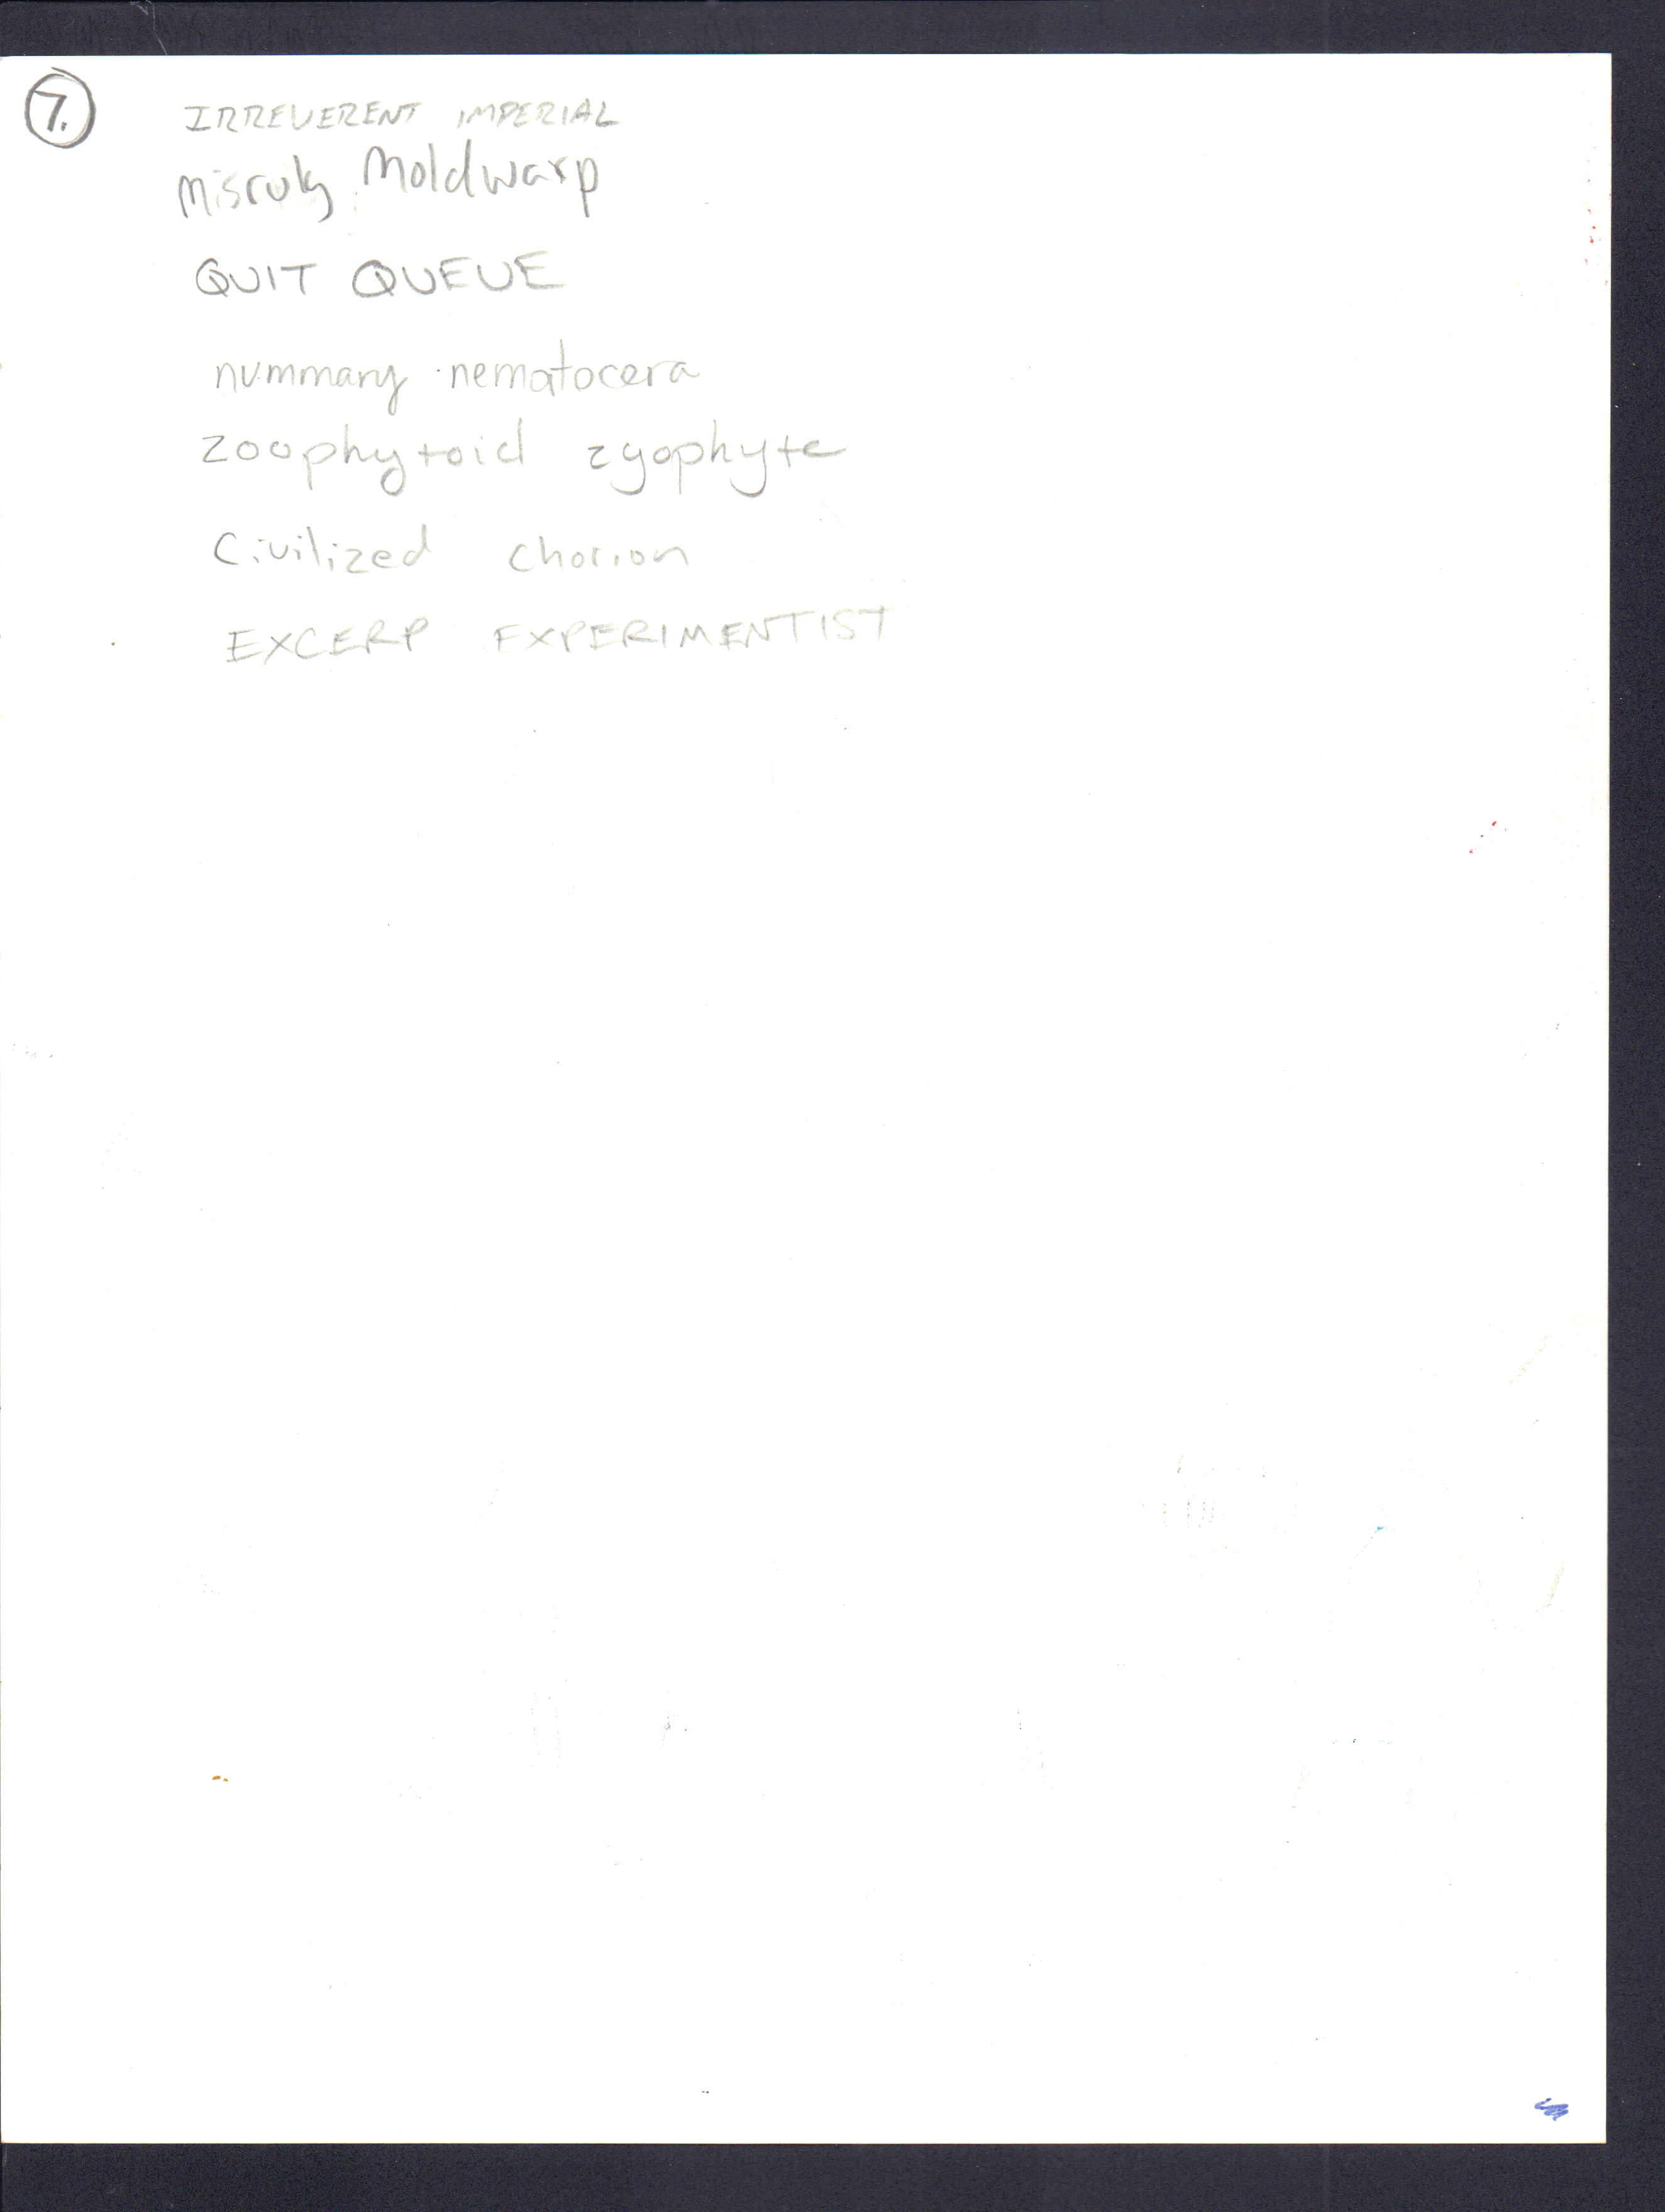 7.
IRREVERENT IMPERIAL
Misruly Moldwarp
QUIT QUEUE
nummary nematocera
zoophytoid zyophyte
Civilized chorion
EXCERP EXPERIMENTIST